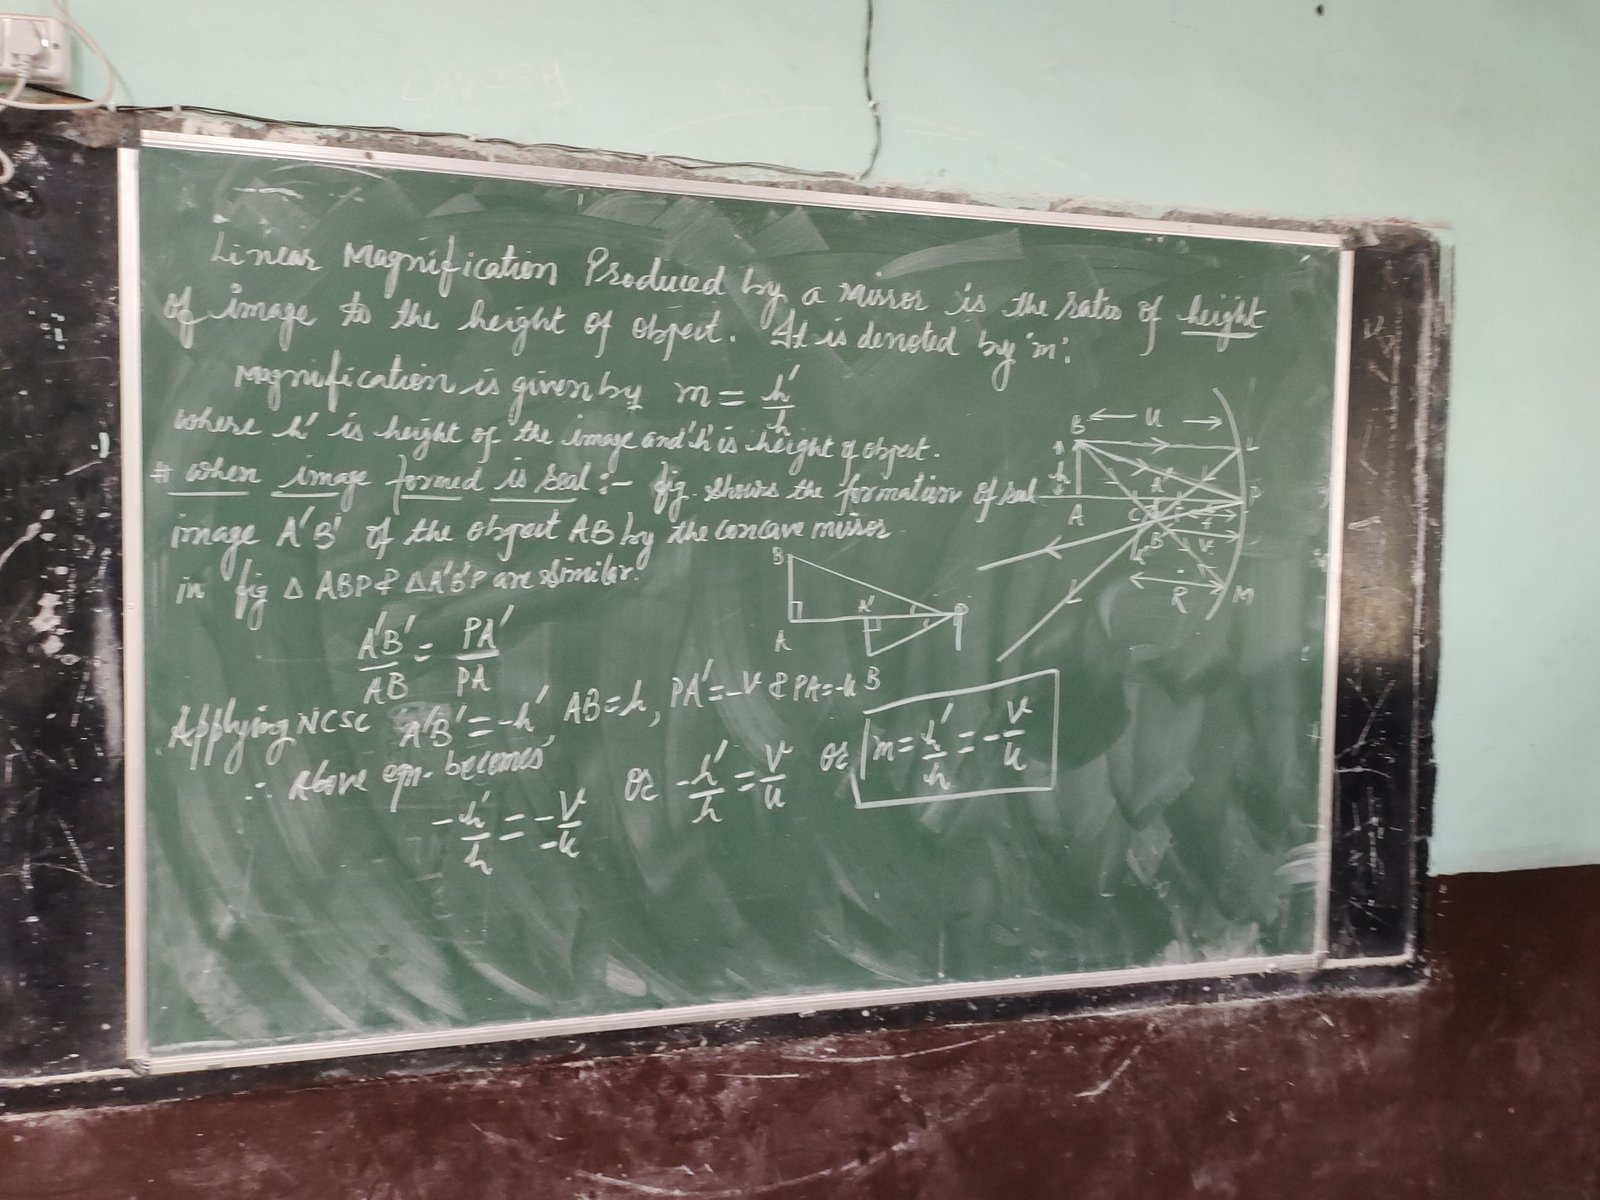 Linear Magnification Produced by a mirror is the ratio of height
of image to the height of object. It is denoted by 'm'.
Magnification is given by m = h'/h
where h' is height of the image and 'h' is height of object.
# when image formed is real :- fig. shows the formation of real
image A'B' of the object AB by the concave mirror
in fig Δ ABP & ΔA'B'P are similar.
A'B'/AB = PA'/PA
Applying NCSC A'B' = -h', AB = h, PA' = -v & PA = -u
∴ Above eqn. becomes
-h'/h = -v/-u or -h'/h = v/u or m = h'/h = -v/u
B u L
h A'
A C F P
B' f
h' v
R M
B
A' P
A
B